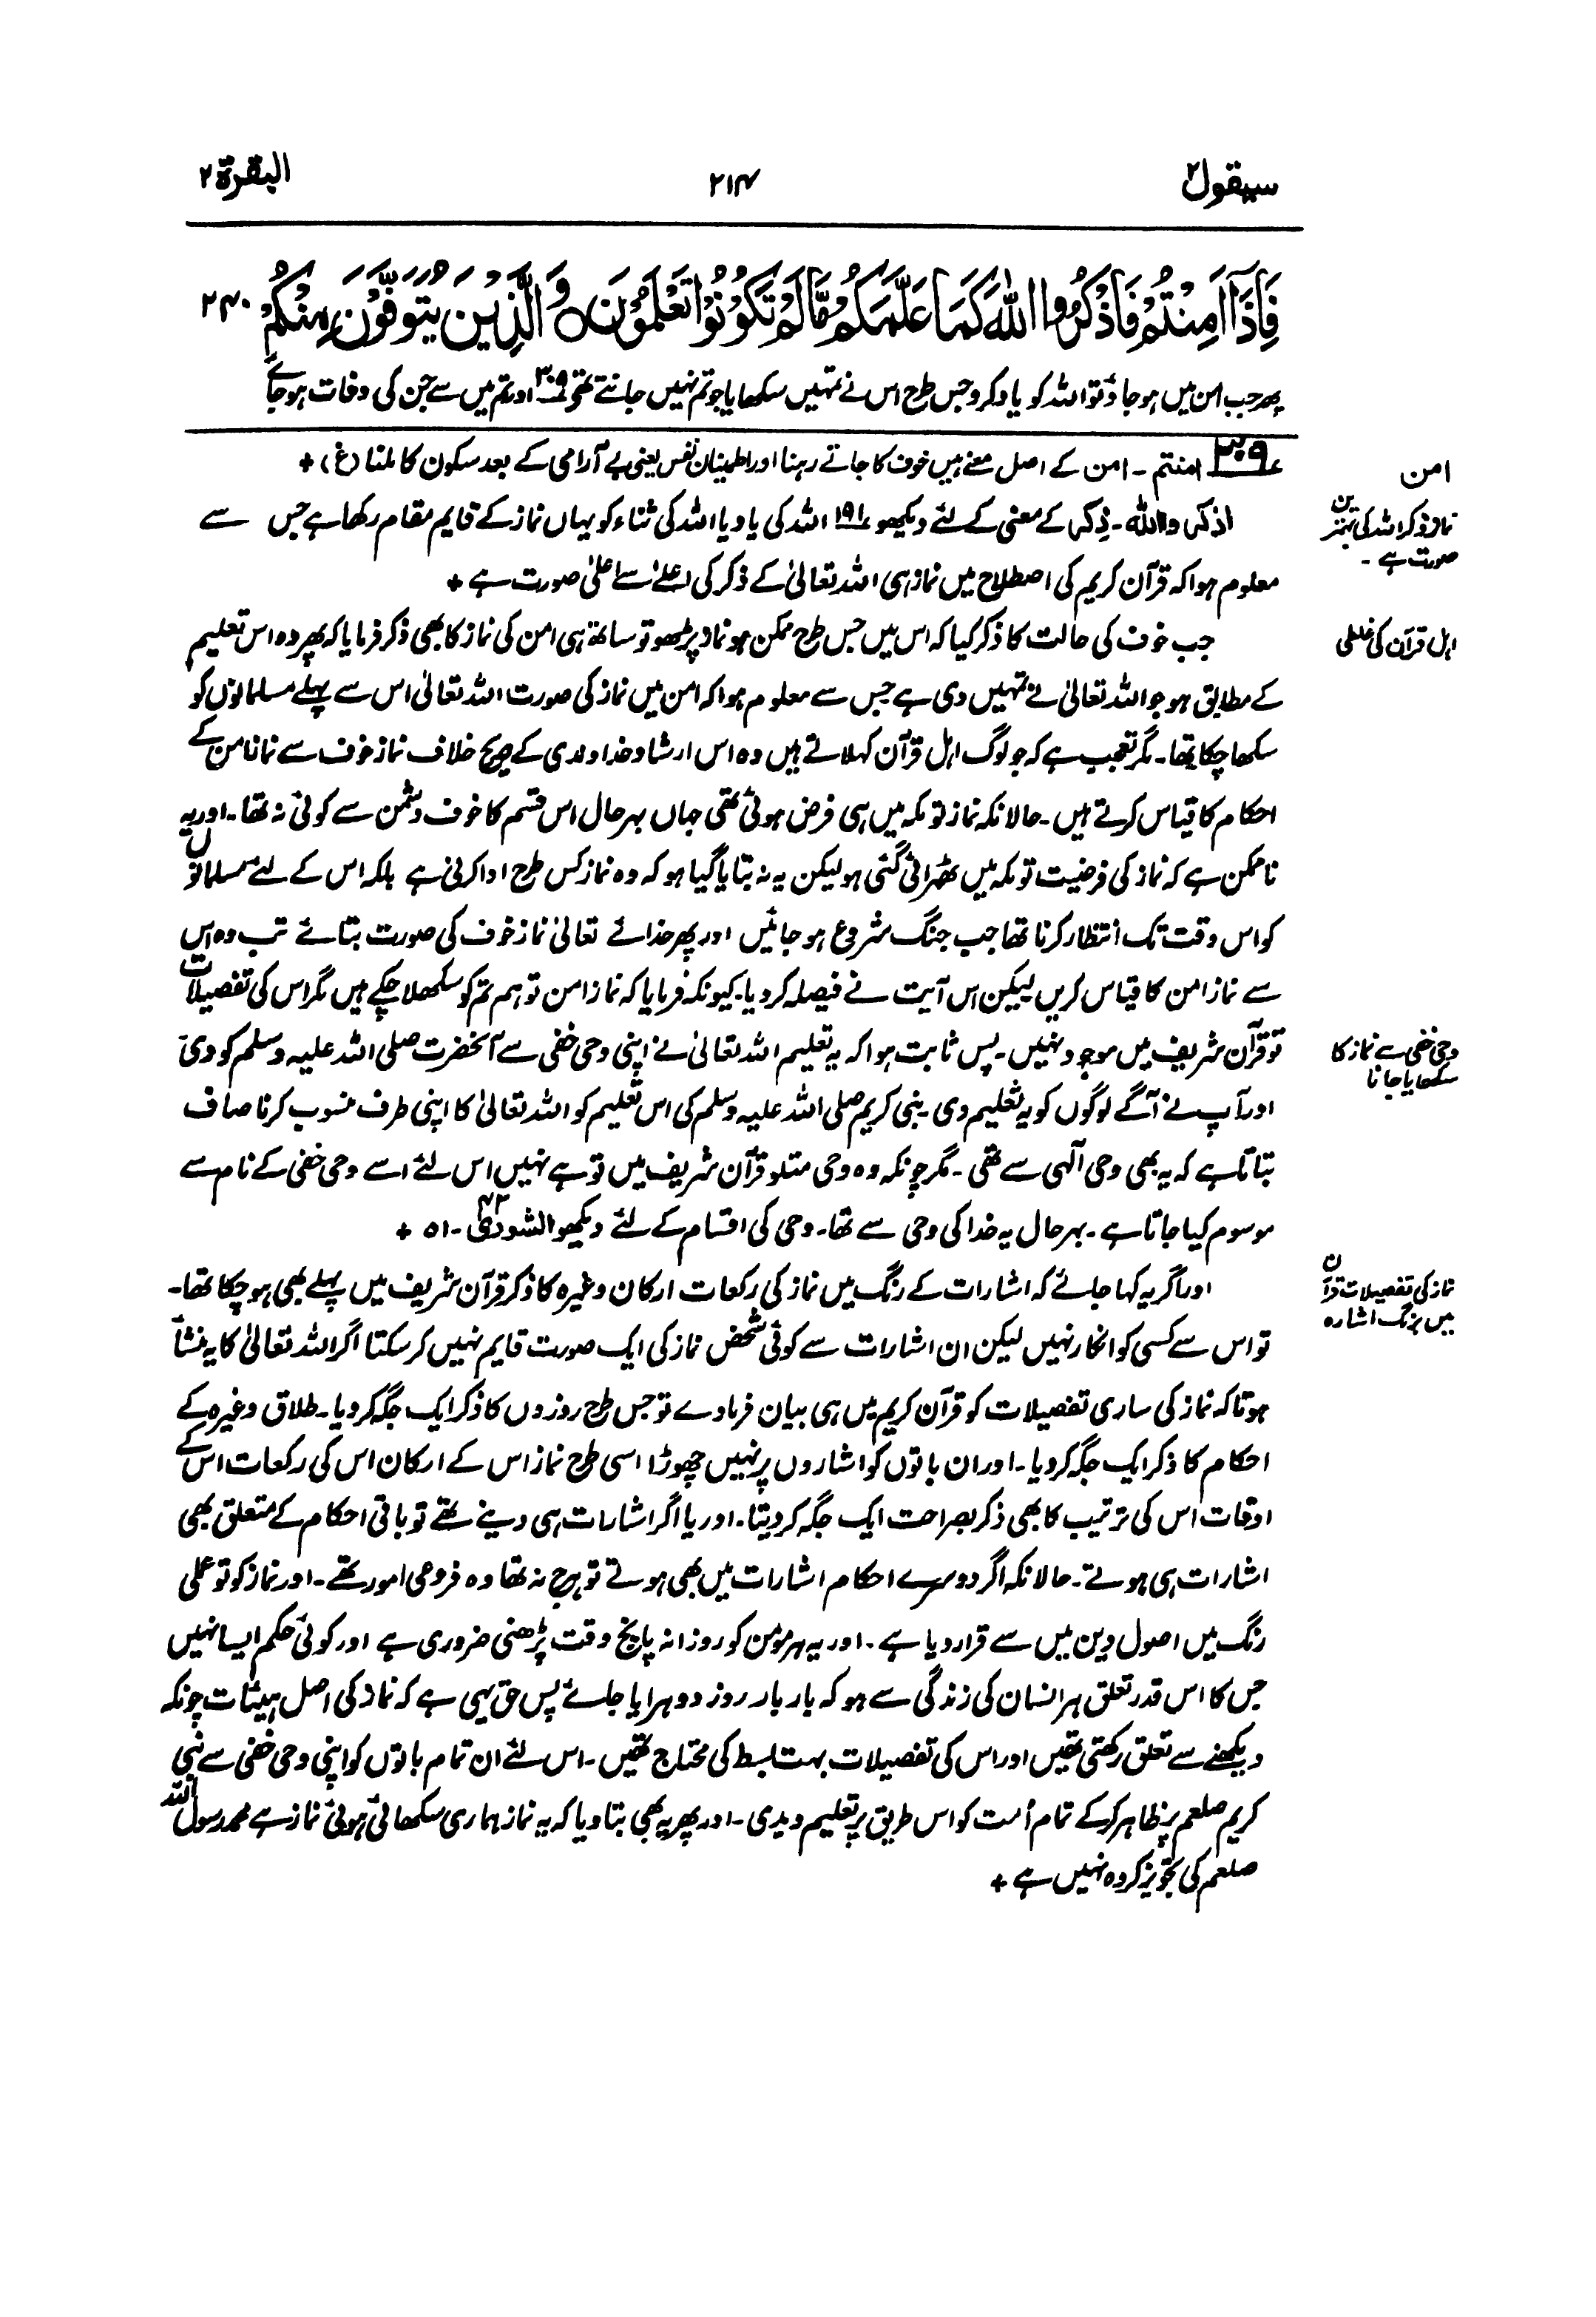 سیقول ۲
۲۱۴
البقرۃ ۲
فَاِذَآ اَمِنْتُمْ فَاذْكُرُوا اللّٰهَ كَمَا عَلَّمَكُمْ مَّا لَمْ تَكُوْنُوْا تَعْلَمُوْنَ ○ وَالَّذِیْنَ یُتَوَفَّوْنَ مِنْكُمْ
۲۴۰
پھر جب امن میں ہو جاؤ تو اللہ کو یاد کرو جس طرح اس نے تمہیں سکھایا جو تم نہیں جانتے تھے ۳۰۹ اور تم میں سے جن کی وفات ہو جائے
۳۰۹ امنتم ۔ امن کے اصل معنے ہیں خوف کا جاتے رہنا اور اطمینان نفس یعنی بے آرامی کے بعد سکون کا ملنا (غ) +
امن
اذکروا اللہ ۔ ذِکر کے معنی کے لئے دیکھو ۱۹۱ اللہ کی یاد یا اللہ کی ثناء کو یہاں نماز کے قایم مقام رکھا ہے جس سے
نماز ذکر اللہ کی بہترین
صورت ہے ۔
معلوم ہوا کہ قرآن کریم کی اصطلاح میں نماز ہی اللہ تعالیٰ کے ذکر کی اعلیٰ سے اعلیٰ صورت ہے +
جب خوف کی حالت کا ذکر کیا کہ اس میں جس طرح ممکن ہو نماز پڑھو تو ساتھ ہی امن کی نماز کا بھی ذکر فرمایا کہ پھر وہ اس تعلیم
اہل قرآن کی غلطی
کے مطابق ہو جو اللہ تعالیٰ نے تمہیں دی ہے جس سے معلوم ہوا کہ امن میں نماز کی صورت اللہ تعالیٰ اس سے پہلے مسلمانوں کو
سکھا چکا تھا ۔ مگر تعجب ہے کہ جو لوگ اہل قرآن کہلاتے ہیں وہ اس ارشاد خداوندی کے صریح خلاف نماز خوف سے نماز امن کے
احکام کا قیاس کرتے ہیں ۔ حالانکہ نماز تو مکہ میں ہی فرض ہوئی تھی جہاں بہرحال اس قسم کا خوف دشمن سے کوئی نہ تھا ۔ اور یہ
ناممکن ہے کہ نماز کی فرضیت تو مکہ میں ٹھہرائی گئی ہو لیکن یہ نہ بتایا گیا ہو کہ وہ نماز کس طرح ادا کرنی ہے بلکہ اس کے لئے مسلمانوں
کو اس وقت تک انتظار کرنا تھا جب جنگ شروع ہو جائیں اور پھر خدائے تعالیٰ نماز خوف کی صورت بتائے تب وہ اس
سے نماز امن کا قیاس کریں لیکن اس آیت نے فیصلہ کر دیا ۔ کیونکہ فرمایا کہ نماز امن تو ہم تم کو سکھلا چکے ہیں مگر اس کی تفصیلات
تو قرآن شریف میں موجود نہیں ۔ پس ثابت ہوا کہ یہ تعلیم اللہ تعالیٰ نے اپنی وحی خفی سے آنحضرت صلی اللہ علیہ وسلم کو دی
وحی خفی سے نماز کا
سکھایا جانا
اور آپ نے آگے لوگوں کو یہ تعلیم دی ۔ نبی کریم صلی اللہ علیہ وسلم کی اس تعلیم کو اللہ تعالیٰ کا اپنی طرف منسوب کرنا صاف
بتاتا ہے کہ یہ بھی وحی الٰہی سے تھی ۔ مگر چونکہ وہ وحی متلو قرآن شریف میں تو ہے نہیں اس لئے اسے وحی خفی کے نام سے
موسوم کیا جاتا ہے ۔ بہرحال یہ خدا کی وحی سے تھا ۔ وحی کی اقسام کے لئے دیکھو الشوریٰ ۴۲ ۔ ۵۱ +
اور اگر یہ کہا جائے کہ اشارات کے رنگ میں نماز کی رکعات ارکان وغیرہ کا ذکر قرآن شریف میں پہلے بھی ہو چکا تھا ۔
نماز کی تفصیلات قرآن
میں برنگ اشارہ
تو اس سے کسی کو انکار نہیں لیکن ان اشارات سے کوئی شخص نماز کی ایک صورت قایم نہیں کر سکتا اگر اللہ تعالیٰ کا یہ منشأ
ہوتا کہ نماز کی ساری تفصیلات کو قرآن کریم میں ہی بیان فرماوے تو جس طرح روزوں کا ذکر ایک جگہ کر دیا ۔ طلاق وغیرہ کے
احکام کا ذکر ایک جگہ کر دیا ۔ اور ان باتوں کو اشاروں پر نہیں چھوڑا اسی طرح نماز اس کے ارکان اس کی رکعات اس کے
اوقات اس کی ترتیب کا بھی ذکر بصراحت ایک جگہ کر دیتا ۔ اور یا اگر اشارات ہی دینے تھے تو باقی احکام کے متعلق بھی
اشارات ہی ہوتے ۔ حالانکہ اگر دوسرے احکام اشارات میں بھی ہوتے تو ہرج نہ تھا وہ فروعی امور تھے ۔ اور نماز کو تو عملی
رنگ میں اصول دین میں سے قرار دیا ہے ۔ اور یہ ہر مومن کو روزانہ پانچ وقت پڑھنی ضروری ہے اور کوئی حکم ایسا نہیں
جس کا اس قدر تعلق ہر انسان کی زندگی سے ہو کہ بار بار روز دوہرایا جائے پس حق یہی ہے کہ نماز کی اصل ہیئات چونکہ
دیکھنے سے تعلق رکھتی تھیں اور اس کی تفصیلات بہت بسط کی محتاج تھیں ۔ اس لئے ان تمام باتوں کو اپنی وحی خفی سے نبی
کریم صلعم پر ظاہر کر کے تمام اُمت کو اس طریق پر تعلیم دیدی ۔ اور پھر یہ بھی بتا دیا کہ یہ نماز ہماری سکھائی ہوئی نماز ہے محمد رسول اللہ
صلعم کی تجویز کردہ نہیں ہے +